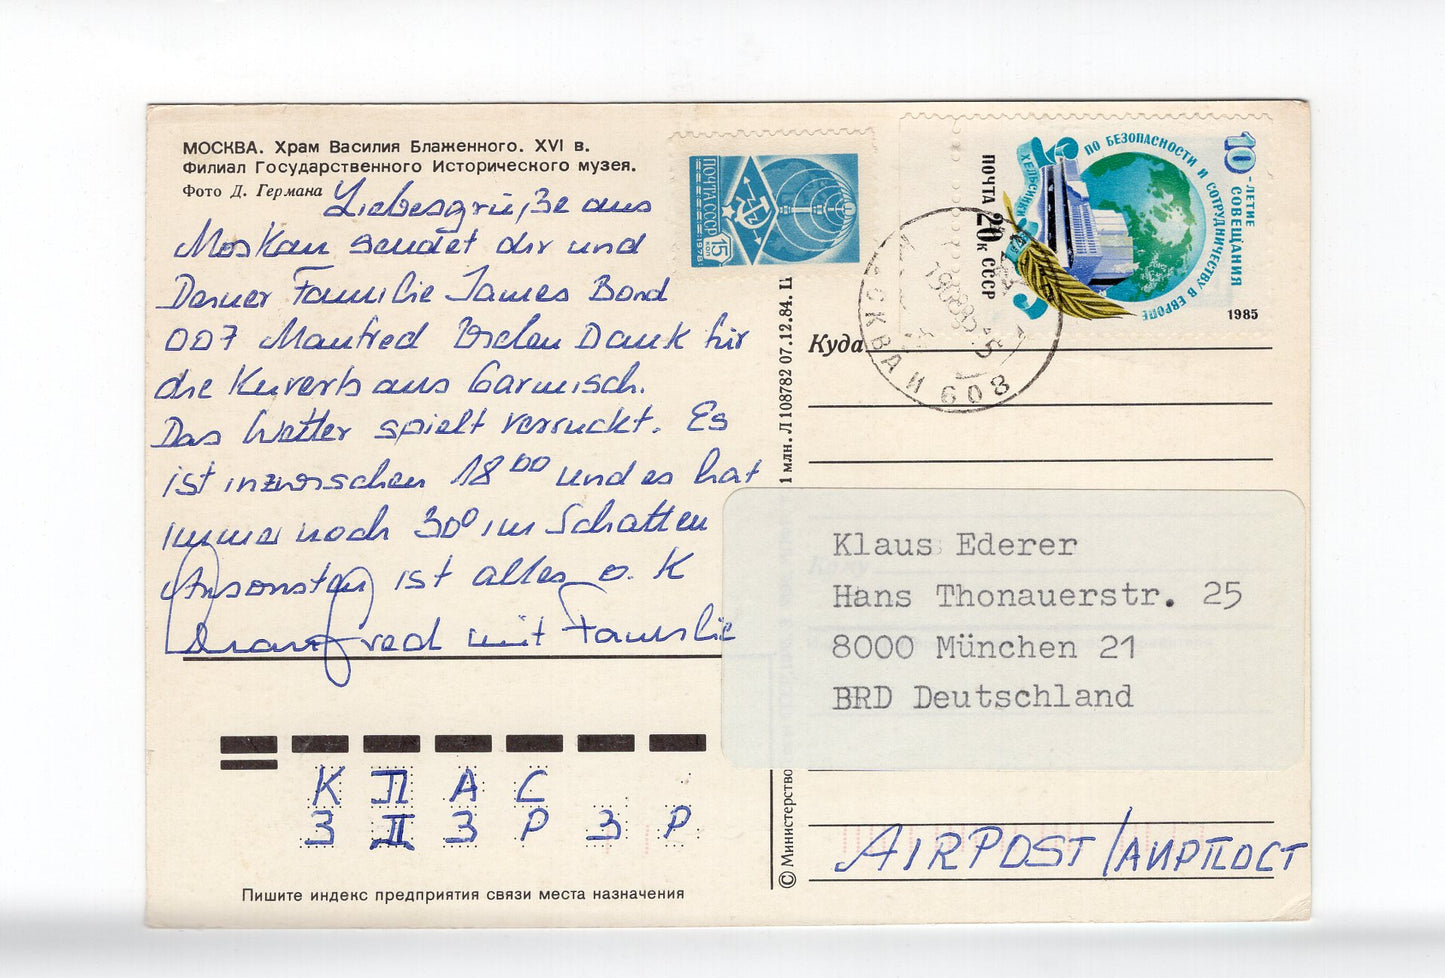 МОСКВА. Храм Василия Блаженного. XVI в.
Филиал Государственного Исторического музея.
Фото Д. Германа
Liebesgrüße aus
Moskau sendet dir und
Deiner Familie James Bond
007 Manfred Vielen Dank für
die Kurerts aus Garmisch.
Das Wetter spielt verrückt. Es
ist inzwischen 18 00 und es hat
immer noch 30° im Schatten
Ansonsten ist alles o. K
Manfred mit Familie
К П А С
З П З Р З Р
Пишите индекс предприятия связи места назначения
ПОЧТА СССР
15 КОП
·1978·
10-ЛЕТИЕ СОВЕЩАНИЯ
ПО БЕЗОПАСНОСТИ И СОТРУДНИЧЕСТВУ В ЕВРОПЕ
ХЕЛЬСИНКИ
ПОЧТА 20к СССР
1985
МОСКВА И 603
1 млн. Л108782 07.12.84. Ц
© Министерство
Куда
Кому
Klaus Ederer
Hans Thonauerstr. 25
8000 München 21
BRD Deutschland
AIRPOST/АИРПОСТ